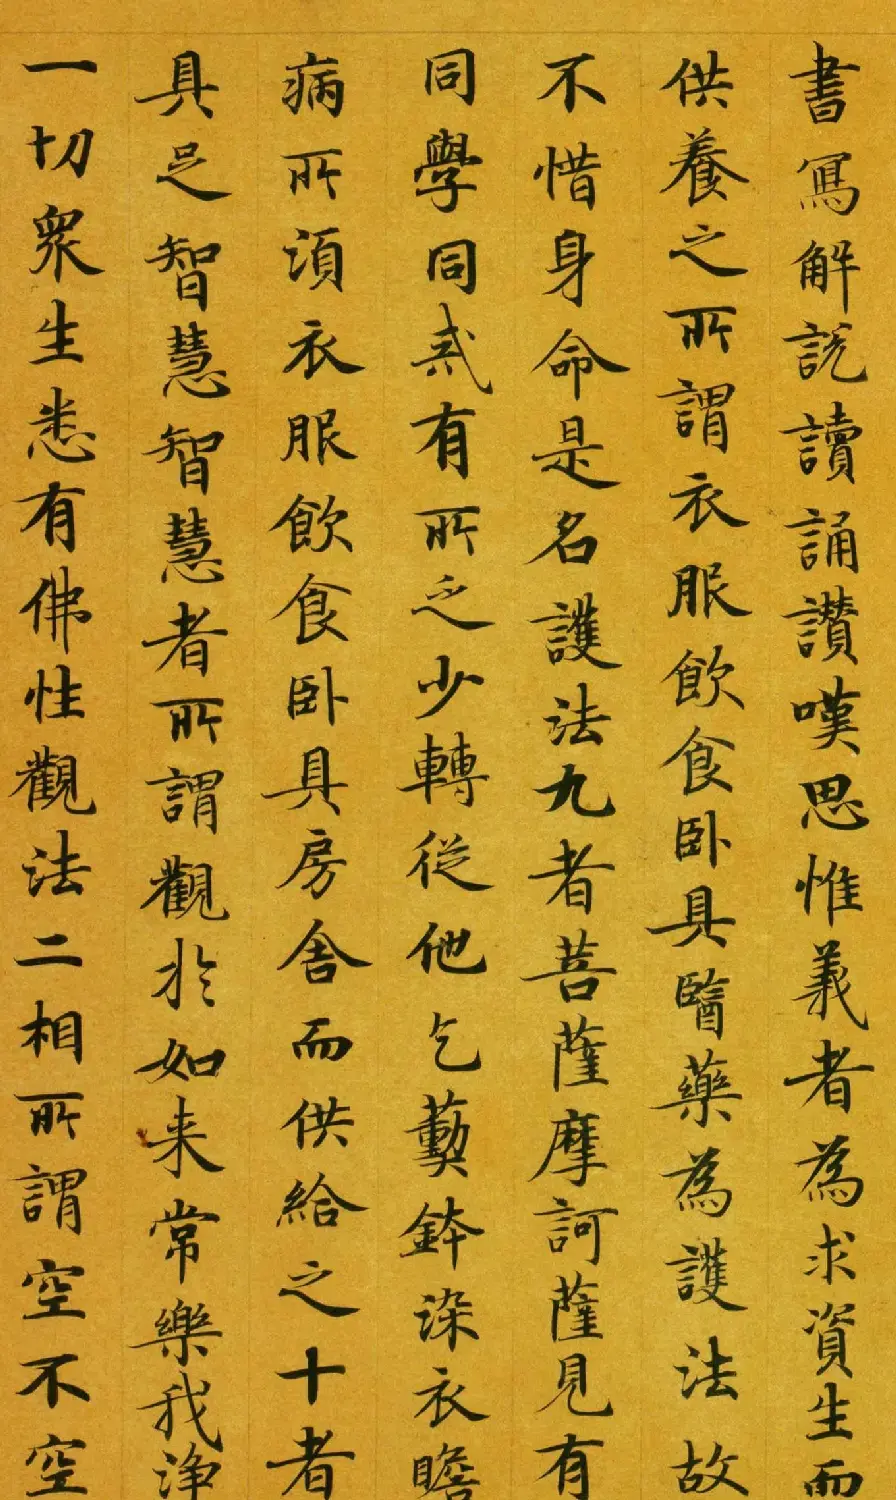 書寫解說讀誦讚嘆思惟義者為求資生而
供養之所謂衣服飲食臥具醫藥為護法故
不惜身命是名護法九者菩薩摩訶薩見有
同學同戒有所乏少轉從他乞薰鉢染衣瞻
病所須衣服飲食臥具房舍而供給之十者
具足智慧智慧者所謂觀於如来常樂我淨
一切眾生悉有佛性觀法二相所謂空不空